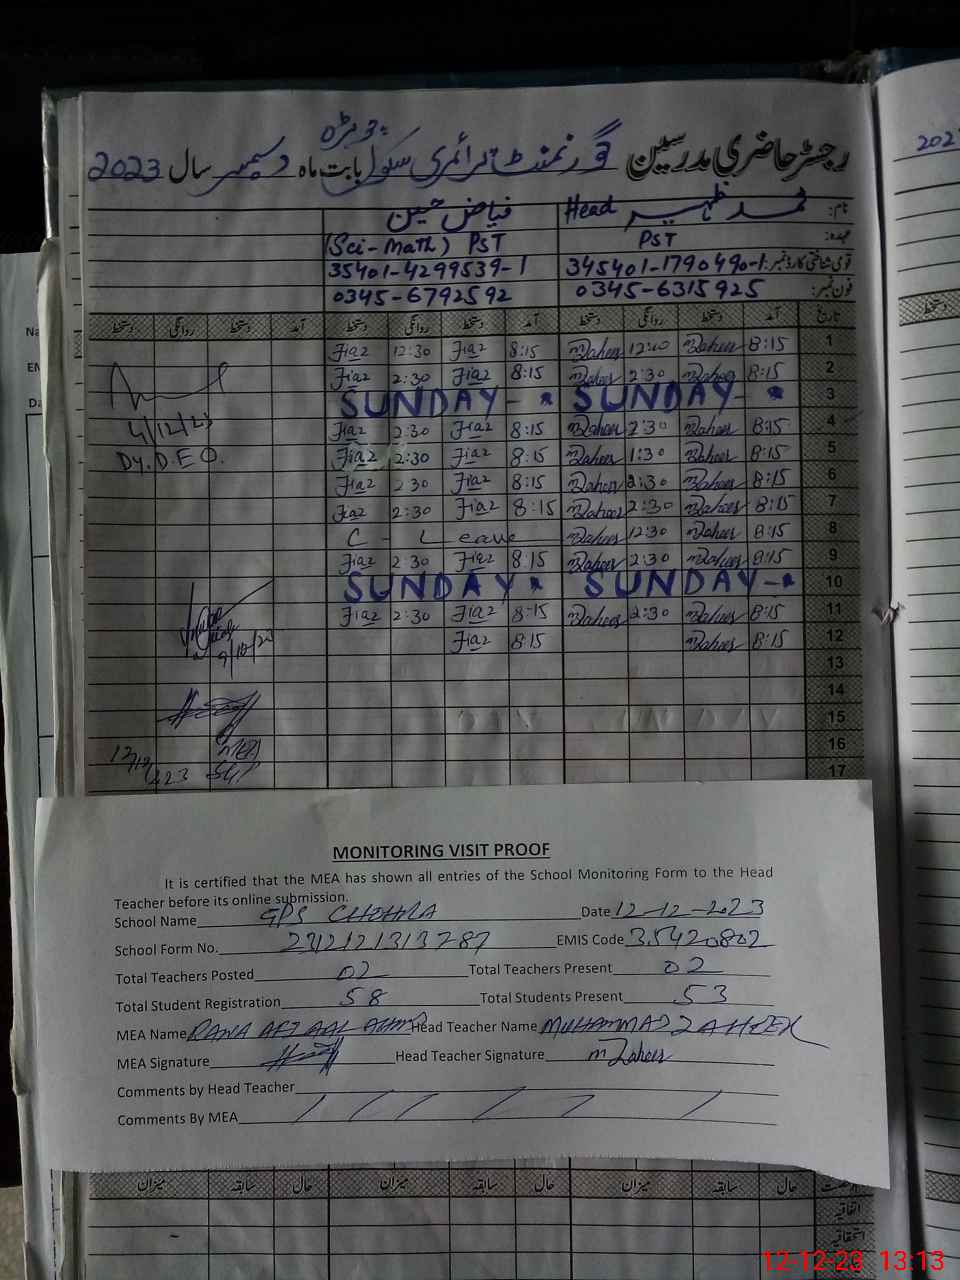 رجسٹر حاضری مدرسین گورنمنٹ پرائمری سکول بابت ماہ دسمبر سال 2023
نام: محمد ظہیر Head فیاض حسین
عہدہ: PST (Sci-Math) PST
قومی شناختی کارڈ نمبر: 345401-1790490-1 35401-4299539-1
فون نمبر: 0345-6315925 0345-6792592
تاریخ آمد دستخط روانگی دستخط آمد دستخط روانگی دستخط آمد دستخط روانگی دستخط
1 8:15 mZaheer mZaheer 8:15 Fiaz 12:30 Fiaz
2 8:15 mZaheer 2:30 mZaheer 8:15 Fiaz 2:30 Fiaz
3 SUNDAY - * SUNDAY - *
4 8:15 mZaheer 2:30 mZaheer 8:15 Fiaz 2:30 Fiaz
4/12/23
5 8:15 mZaheer 1:30 mZaheer 8:15 Fiaz 2:30 Fiaz
Dy. D.E.O.
6 8:15 mZaheer 2:30 mZaheer 8:15 Fiaz 2 30 Fiaz
7 8:15 mZaheer 2:30 mZaheer 8:15 Fiaz 2:30 Fiaz
8 8:15 mZaheer 12:30 mZaheer C - Leave
9 8:15 mZaheer 2:30 mZaheer 8:15 Fiaz 2:30 Fiaz
10 SUNDAY - * SUNDAY *
11 8:15 mZaheer 2:30 mZaheer 8:15 Fiaz 2:30 Fiaz
12 8:15 mZaheer 8:15 Fiaz
13
14
15
16
17
MONITORING VISIT PROOF
It is certified that the MEA has shown all entries of the School Monitoring Form to the Head
Teacher before its online submission.
School Name GPS CHOHRA Date 12-12-2023
School Form No. 2312121313787 EMIS Code 35420802
Total Teachers Posted 02 Total Teachers Present 02
Total Student Registration 58 Total Students Present 53
MEA Name RANA AFZAAL AHMD Head Teacher Name MUHAMMAD ZAHEER
MEA Signature Head Teacher Signature mZaheer
Comments by Head Teacher
Comments By MEA
حال سابقہ میزان حال سابقہ میزان حال سابقہ میزان
اتفاقیہ
استحقاقیہ
12-12-23 13:13